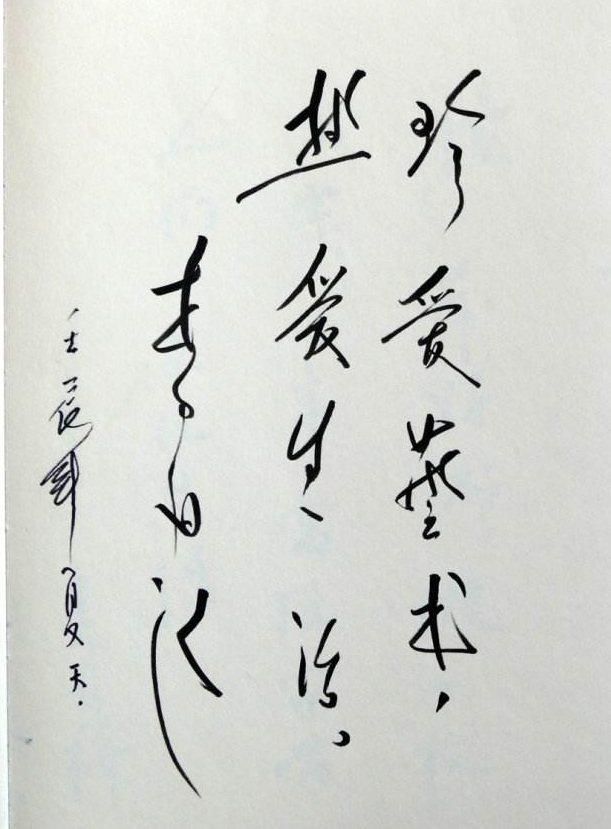 珍爱藝术，
热爱生活。
壬辰年夏天.